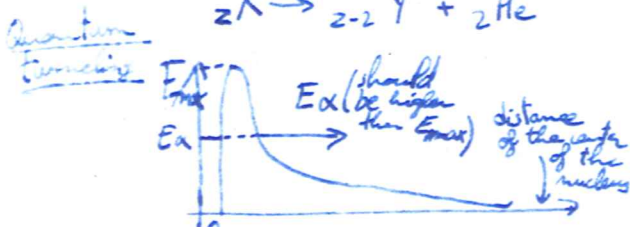 Z X → Z-2 Y + 2 He
Quantum
tunneling
Emax
Eα (should
be higher
then Emax)
Eα
distance
of the center
of the
nucleus